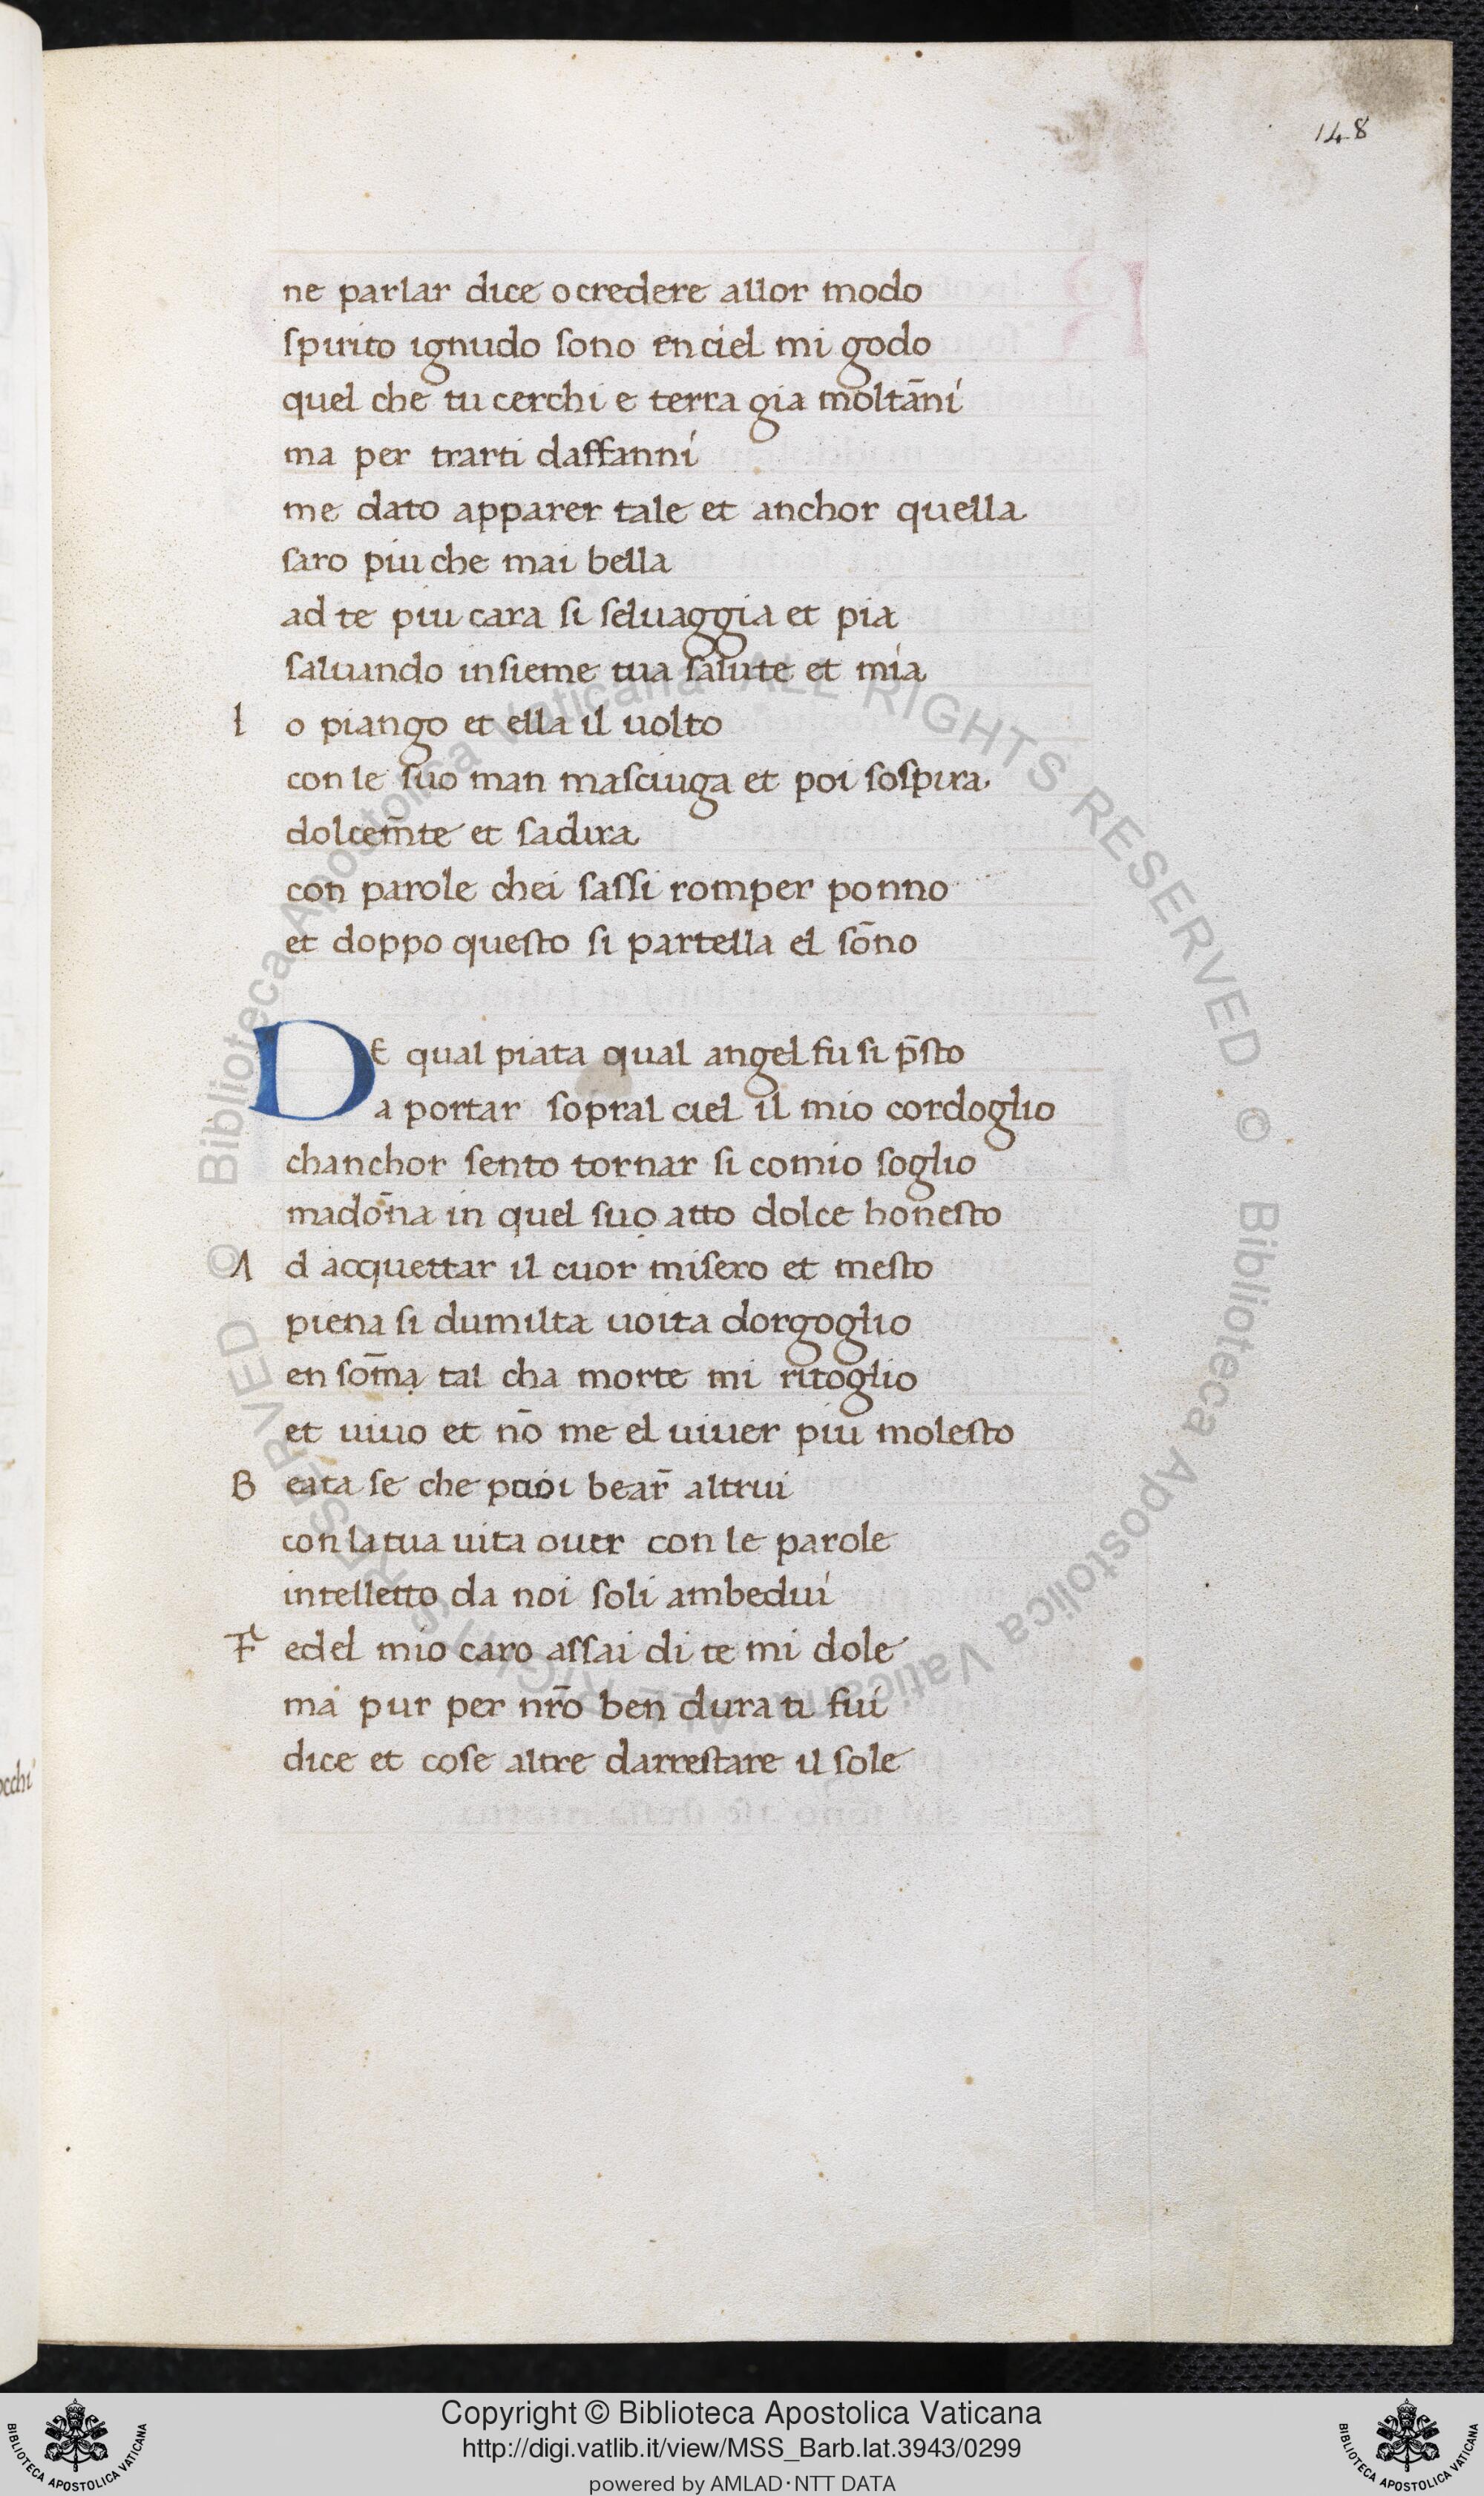 148
ne parlar dice o credere allor modo
spirito ignudo sono en ciel mi godo
quel che tu cerchi e terra gia molta̅ni
ma per trarti daffanni
me dato apparer tale et anchor quella
saro piu che mai bella
ad te piu cara si seluaggia et pia
saluando insieme tua salute et mia
I o piango et ella il uolto
con le suo man masciuga et poi sospira
dolcem̅te et sadira
con parole chei sassi romper ponno
et doppo questo si partella el so̅no
DE qual piata qual angel fu si p̅sto
a portar sopral ciel il mio cordoglio
chanchor sento tornar si comio soglio
mado̅na in quel suo atto dolce honesto
A d acquettar il cuor misero et mesto
piena si dumilta uoita dorgoglio
en som̅a tal cha morte mi ritoglio
et uiuo et no̅ me el uiuer piu molesto
B eata se che puoi bear̅ altrui
con la tua uita ouer con le parole
intelletto da noi soli ambedui
F edel mio caro assai di te mi dole
ma pur per nr̅o ben dura ti fui
dice et cose altre darrestare il sole
occhi
© Biblioteca Apostolica Vaticana ALL RIGHTS RESERVED © Biblioteca Apostolica Vaticana ALL RIGHTS RESERVED
Copyright © Biblioteca Apostolica Vaticana
http://digi.vatlib.it/view/MSS_Barb.lat.3943/0299
powered by AMLAD·NTT DATA
BIBLIOTECA APOSTOLICA VATICANA
BIBLIOTECA APOSTOLICA VATICANA